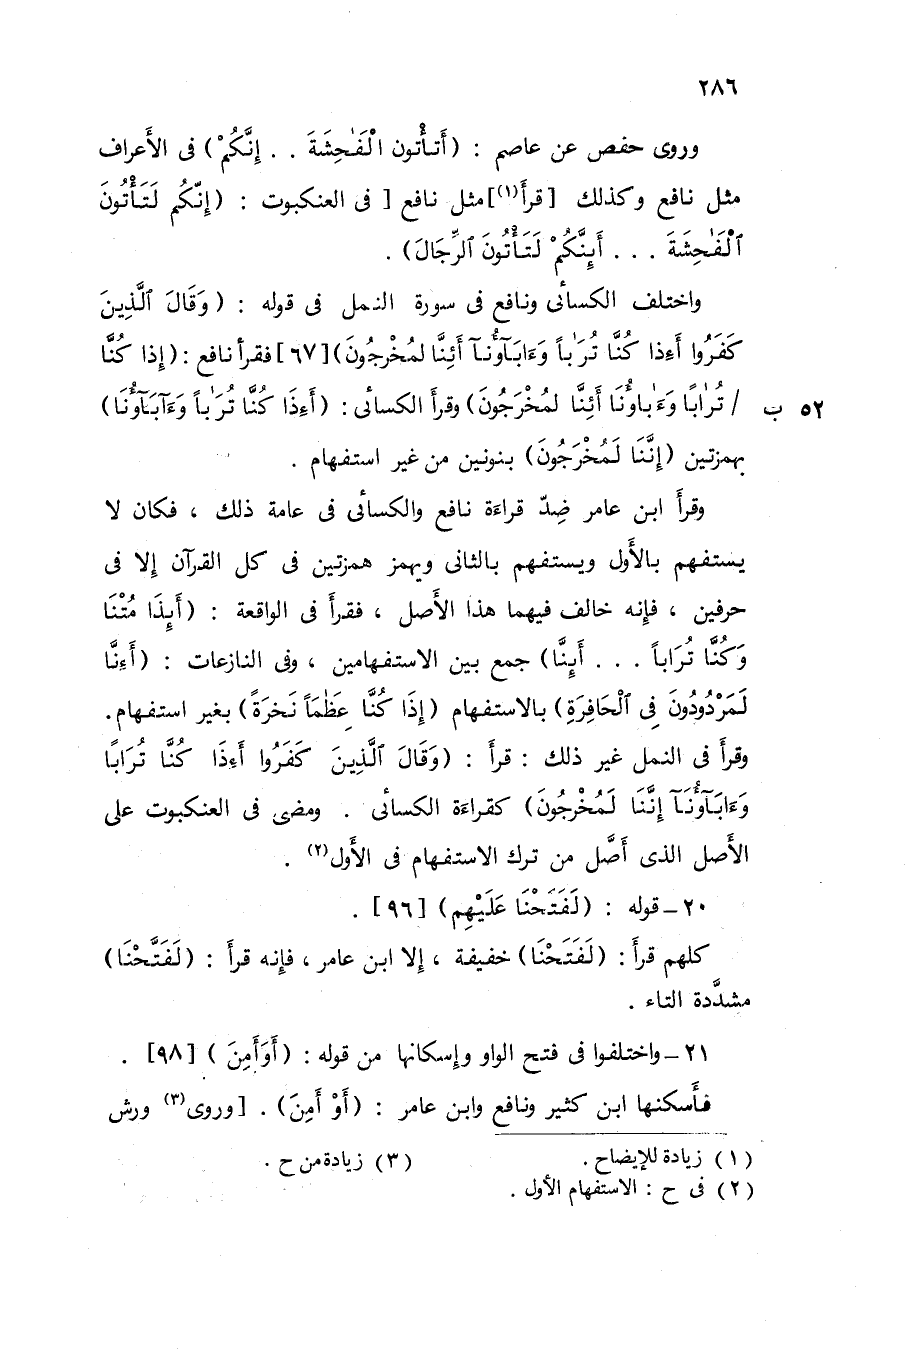 ٢٨٦
وروى حفص عن عاصم : (أَتَأْتُون الْفَٰحِشَةَ . . إِنَّكُمْ) فى الأَعراف
مثل نافع وكذلك [قرأَ(١)]مثل نافع [ فى العنكبوت : (إِنَّكُم لَتَأْتُونَ
ٱلْفَٰحِشَةَ . . . أَيِنَّكُمْ لَتَأْتُونَ ٱلرِّجَالَ) .
واختلف الكسائى ونافع فى سورة النمل فى قوله : (وَقَالَ ٱلَّذِينَ
كَفَرُوا أَءِذا كُنَّا تُرَٰباً وَءَابَآؤُنَآ أَئِنَّا لمُخْرجُونَ)[٦٧]فقرأَ نافع :(إِذا كُنَّا
٥٢ ب / تُرٰابًا وَءَٰباؤُنَا أَئِنَّا لمُخْرَجُونَ) وقرأَ الكسائى : (أَءِذَا كُنَّا تُرَٰباً وَءَآبَآؤُنَا)
بهمزتين (إِنَّنَا لَمُخْرَجُونَ) بنونين من غير استفهام .
وقرأَ ابن عامر ضِدّ قراءَة نافع والكسائى فى عامة ذلك ، فكان لا
يستفهم بالأَول ويستفهم بالثانى ويهمز همزتين فى كل القرآن إلا فى
حرفين ، فإنه خالف فيهما هذا الأَصل ، فقرأَ فى الواقعة : (أَيِذَا مُتْنَا
وَكُنَّا تُرَاباً . . . أَيِنَّا) جمع بين الاستفهامين ، وفى النازعات : (أَءِنَّا
لَمَرْدُودُونَ فِى ٱلْحَافِرَةِ) بالاستفهام (إِذَا كُنَّا عِظَٰمَاً نَخِرَةً) بغير استفهام.
وقرأَ فى النمل غير ذلك : قرأَ : (وَقَالَ ٱلَّذِينَ كَفَرُوا أَءِذَا كُنَّا تُرَابًا
وَءَابَآؤُنَآ إِنَّنَا لَمُخْرجُونَ) كقراءَة الكسائى . ومضى فى العنكبوت على
الأَصل الذى أَصَّل من ترك الاستفهام فى الأَول(٢) .
٢٠ - قوله : (لَفَتَحْنَا عَلَيْهِم) [٩٦] .
كلهم قرأَ : (لَفَتَحْنَا) خفيفة ، إلا ابن عامر ، فإنه قرأَ : (لَفَتَّحْنَا)
مشدَّدة التاء .
٢١ - واختلفوا فى فتح الواو وإسكانها من قوله : (أَوَأَمِنَ ) [٩٨] .
فأَسكنها ابن كثير ونافع وابن عامر : (أَوْ أَمِنَ) . [وروى(٣) ورش
(١) زيادة للإيضاح .
(٣) زيادة من ح .
(٢) فى ح : الاستفهام الأول .